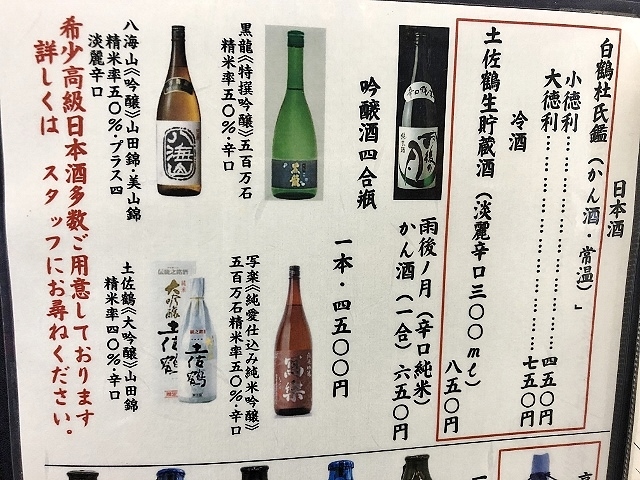 日本酒
白鶴杜氏鑑(かん酒・常温)」
小徳利………………………四五〇円
大徳利………………………七五〇円
冷酒
土佐鶴生貯蔵酒(淡麗辛口三〇〇ml)
八五〇円
雨後ノ月(辛口純米)
かん酒(一合)六五〇円
吟醸酒四合瓶
一本・四五〇〇円
黒龍《特撰吟醸》五百万石
精米率五〇%・辛口
写楽《純愛仕込み純米吟醸》
五百万石精米率五〇%・辛口
八海山《吟醸》山田錦・美山錦
精米率五〇%・プラス四
淡麗辛口
土佐鶴《大吟醸》山田錦
精米率四〇%・辛口
希少高級日本酒多数ご用意しております
詳しくは スタッフにお尋ねください。
雨後の月
黒龍
八海山
寫樂
大吟醸
土佐鶴
土佐鶴